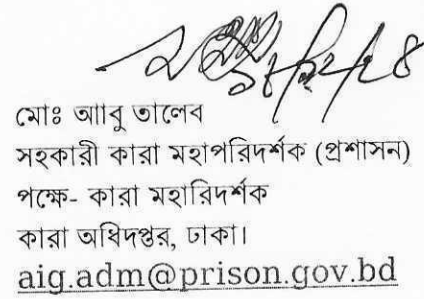 মোঃ আাবু তালেব
সহকারী কারা মহাপরিদর্শক (প্রশাসন)
পক্ষে- কারা মহারিদর্শক
কারা অধিদপ্তর, ঢাকা।
aig.adm@prison.gov.bd